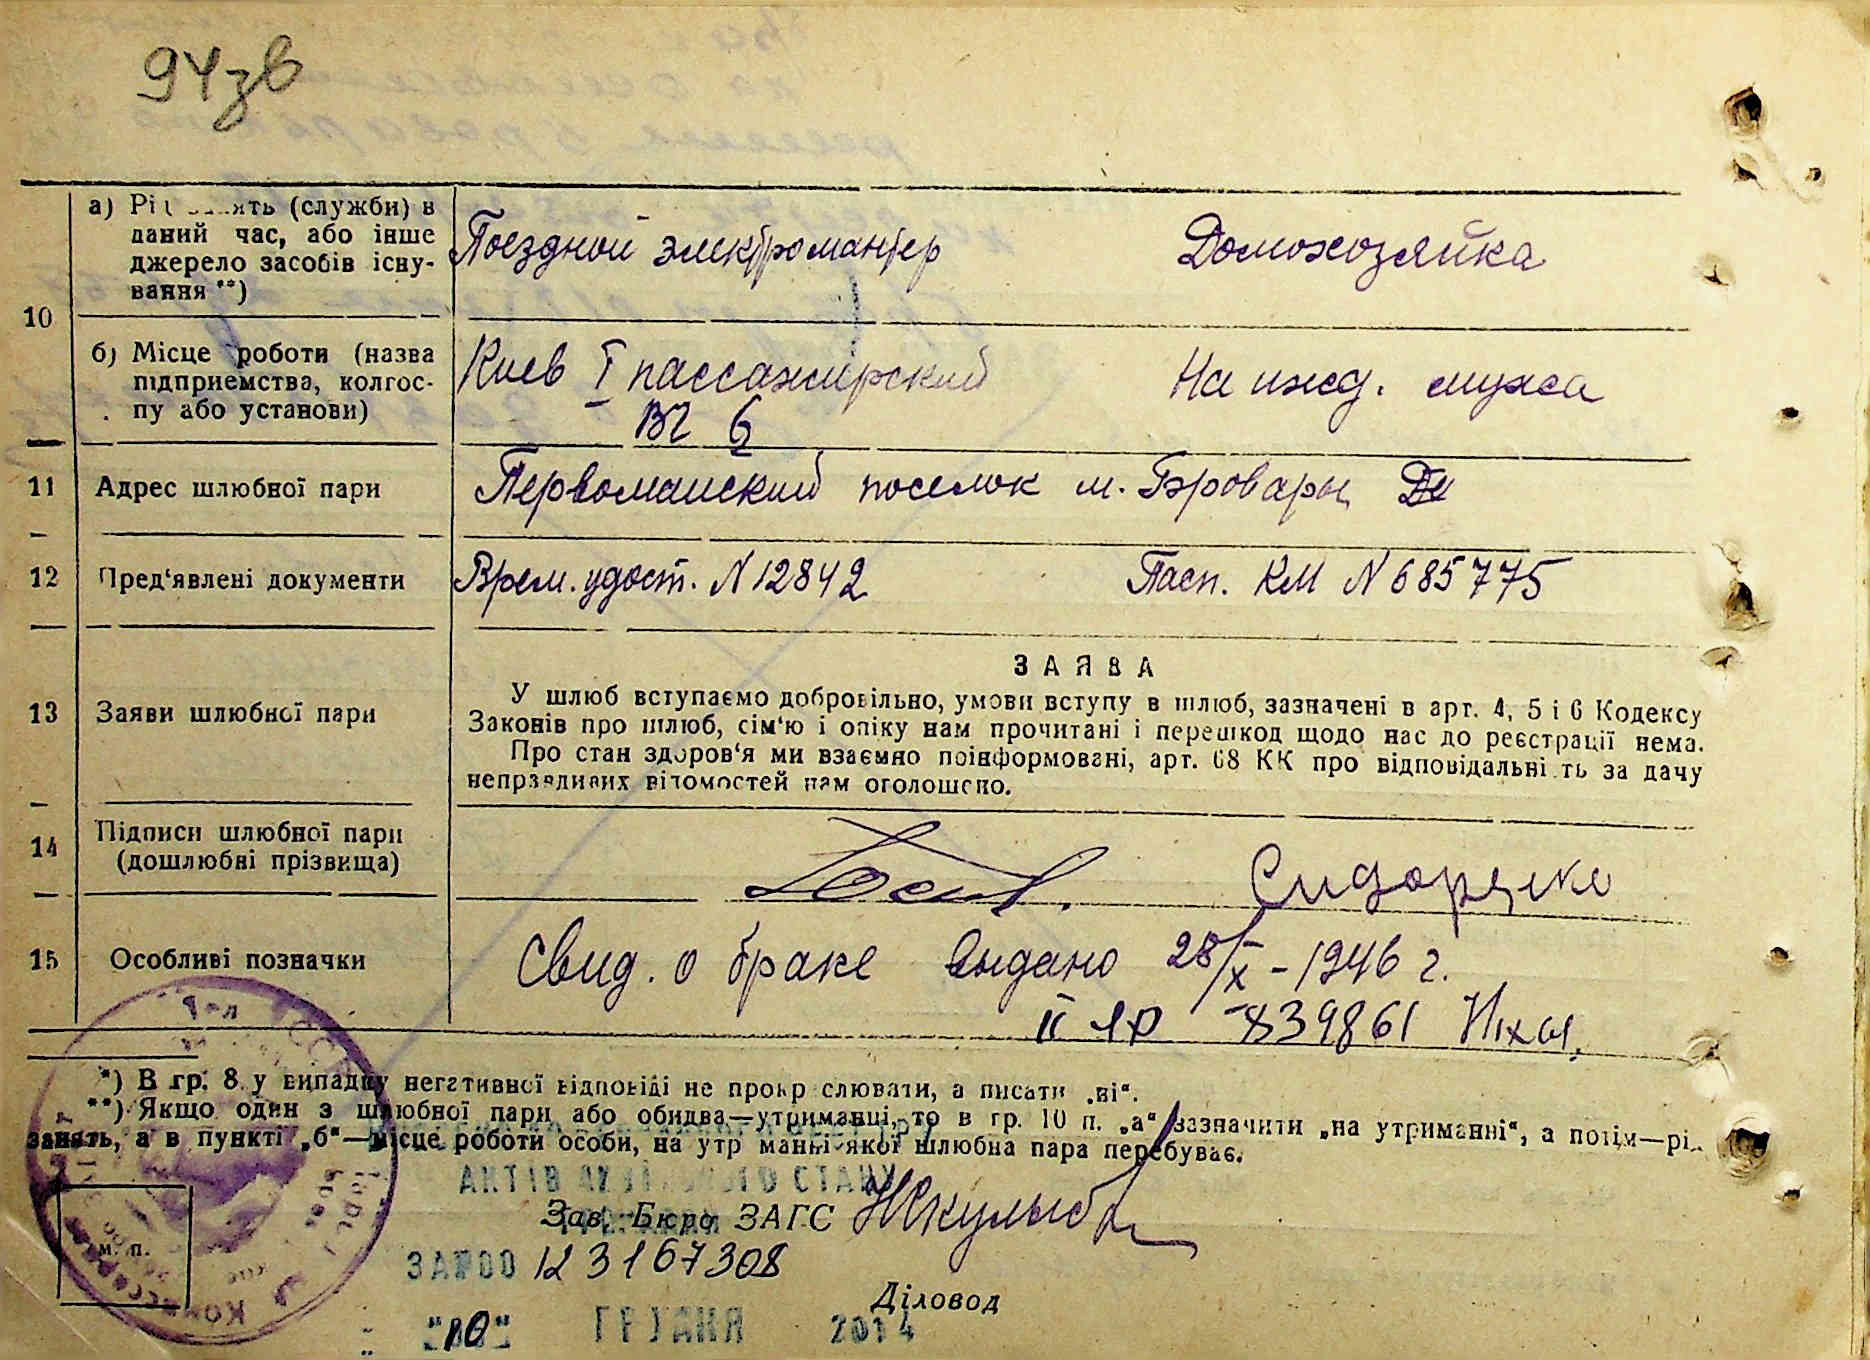 94зв
10
а) Рід занять (служби) в
даний час, або інше
джерело засобів існу-
вання **)
Поездной электромантер
Домохозяйка
б) Місце роботи (назва
підприємства, колгос-
пу або установи)
Киев I пассажирский
ВЧ 6
На ижд. мужа
11
Адрес шлюбної пари
Первомайский поселок м. Бровары
12
Пред'явлені документи
Врем. удост. N 12842
Пасп. КМ N 685775
ЗАЯВА
13
Заяви шлюбної пари
У шлюб вступаємо добровільно, умови вступу в шлюб, зазначені в арт. 4, 5 і 6 Кодексу
Законів про шлюб, сім'ю і опіку нам прочитані і перешкод щодо нас до реєстрації нема.
Про стан здоров'я ми взаємно поінформовані, арт. 68 КК про відповідальні ть за дачу
неправдивих відомостей нам оголошено.
14
Підписи шлюбної пари
(дошлюбні прізвища)
Сидоренко
15
Особливі позначки
Свид. о браке выдано 28/X - 1946 г.
II 839861
*) В гр. 8 у випадку негативної відповіді не прокр слювати, а писати „ні“.
**) Якщо один з шлюбної пари або обидва—утриманці, то в гр. 10 п. „а“ зазначити „на утриманні“, а потім—рі
занять, а в пункті „б“—місце роботи особи, на утр манні якої шлюбна пара перебуває.
АКТІВ ЦИВІЛЬНОГО СТАНУ
Зав. Бюро ЗАГС
м. п.
ЗА №00 123167308
Діловод
"10" ГРУДНЯ 2014